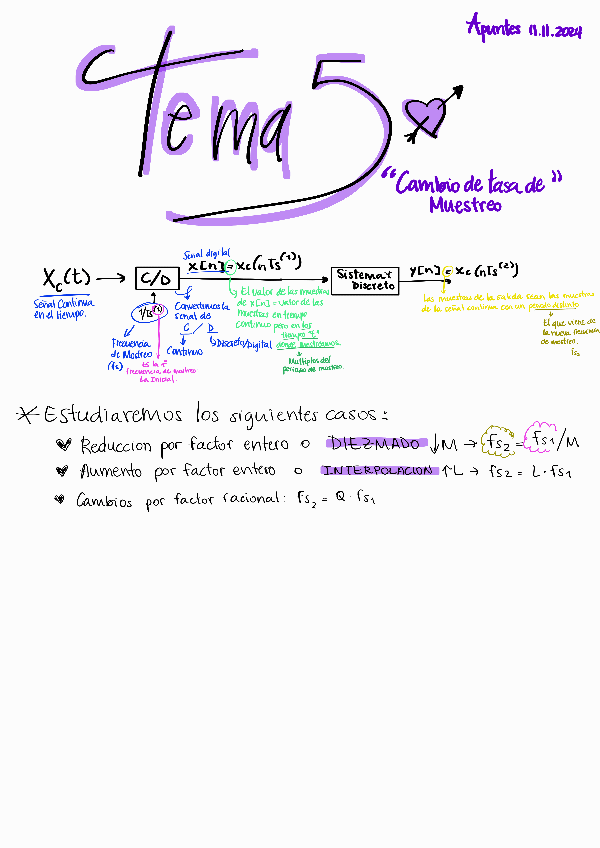 Apuntes 11.11.2024
Tema 5
"Cambio de tasa de"
Muestreo
Señal digital
Xc(t) → C/D
x[n] = xc(nTs⁽¹⁾)
Sistema Discreto
y[n] = xc(nTs⁽²⁾)
Señal Continua
en el tiempo.
1/Ts⁽¹⁾
Frecuencia
de Mostreo
(fs)
es la 1ª
frecuencia de mostreo
La Inicial.
Convertimos la
señal de
C / D
Continuo
Discreto/Digital
El valor de las muestras
de x[n] = valor de las
muestras en tiempo
continuo pero en los
tiempo "t"
donde muestreamos.
Multiplos del
periodo de mostreo.
las muestras de la salida sean las muestras
de la señal continua con un periodo distinto
El que viene de
la nueva frecuencia
de mostreo.
fs
* Estudiaremos los siguientes casos:
Reduccion por factor entero o DIEZMADO ↓M → fs2 = fs1/M
Aumento por factor entero o INTERPOLACION ↑L → fs2 = L·fs1
Cambios por factor racional: fs2 = Q·fs1